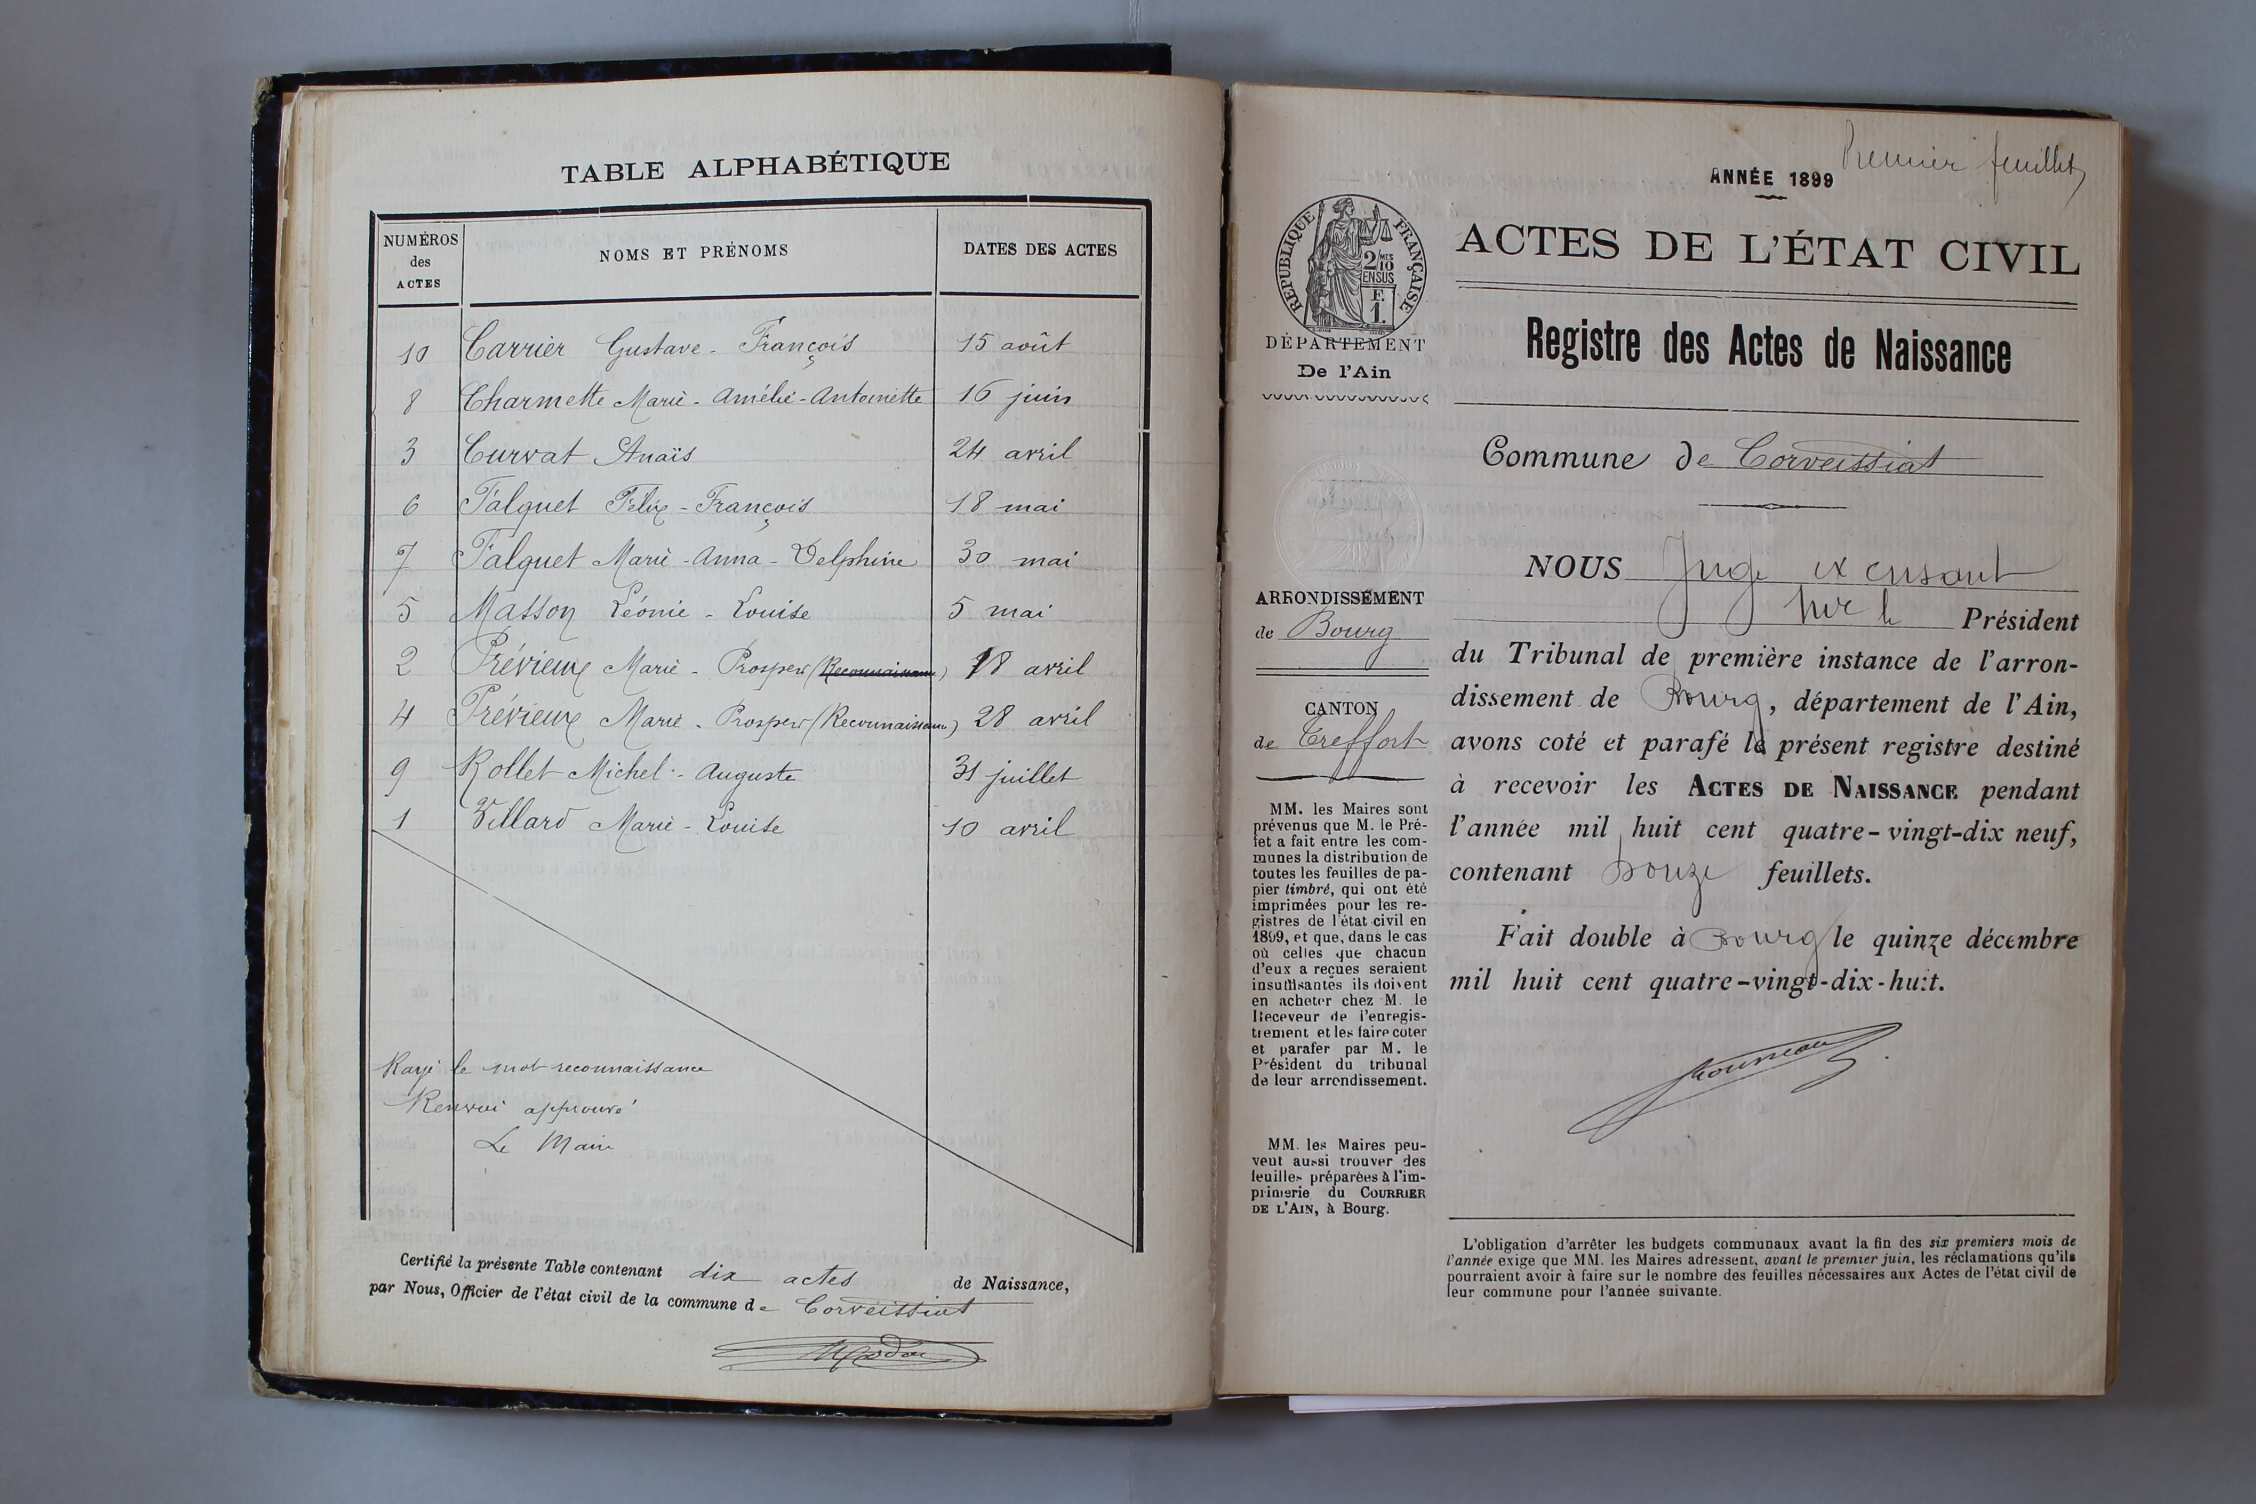 TABLE ALPHABÉTIQUE
NUMÉROS des ACTES NOMS ET PRÉNOMS DATES DES ACTES
10 Carrier Gustave - François 15 août
8 Charmette Marie - Amélie - Antoinette 16 juin
3 Curvat Anaïs 24 avril
6 Falquet Félix - François 18 mai
7 Falquet Marie - Anna - Delphine 30 mai
5 Masson Léonie - Louise 5 mai
2 Prévieux Marie - Prosper (Reconnaissance) 18 avril
4 Prévieux Marie - Prosper (Reconnaissance) 28 avril
9 Rollet Michel - Auguste 31 juillet
1 Villard Marie - Louise 10 avril
Rayé le mot reconnaissance
Renvoi approuvé
Le Maire
Certifié la présente Table contenant dix actes de Naissance,
par Nous, Officier de l'état civil de la commune de Corveissiat
Premier feuillet
ANNÉE 1899
RÉPUBLIQUE FRANÇAISE
2/10 MES
EN SUS
F.
1.
DÉPARTEMENT
De l'Ain
ARRONDISSEMENT
de Bourg
CANTON
de Treffort
MM. les Maires sont
prévenus que M. le Pré-
fet a fait entre les com-
munes la distribution de
toutes les feuilles de pa-
pier timbré, qui ont été
imprimées pour les re-
gistres de l'état civil en
1899, et que, dans le cas
où celles que chacun
d'eux a reçues seraient
insuffisantes ils doivent
en acheter chez M. le
Receveur de l'enregis-
trement et les faire coter
et parafer par M. le
Président du tribunal
de leur arrondissement.
MM. les Maires peu-
vent aussi trouver des
feuilles préparées à l'im-
primerie du COURRIER
DE L'AIN, à Bourg.
ACTES DE L'ÉTAT CIVIL
Registre des Actes de Naissance
Commune de Corveissiat
NOUS Juge ex ensant
pour le Président
du Tribunal de première instance de l'arron-
dissement de Bourg, département de l'Ain,
avons coté et parafé le présent registre destiné
à recevoir les ACTES DE NAISSANCE pendant
l'année mil huit cent quatre-vingt-dix neuf,
contenant douze feuillets.
Fait double à Bourg le quinze décembre
mil huit cent quatre-vingt-dix-huit.
L'obligation d'arrêter les budgets communaux avant la fin des six premiers mois de
l'année exige que MM. les Maires adressent, avant le premier juin, les réclamations qu'ils
pourraient avoir à faire sur le nombre des feuilles nécessaires aux Actes de l'état civil de
leur commune pour l'année suivante.